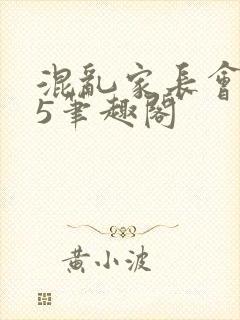 混亂家長會
5筆趣閣
黃小波